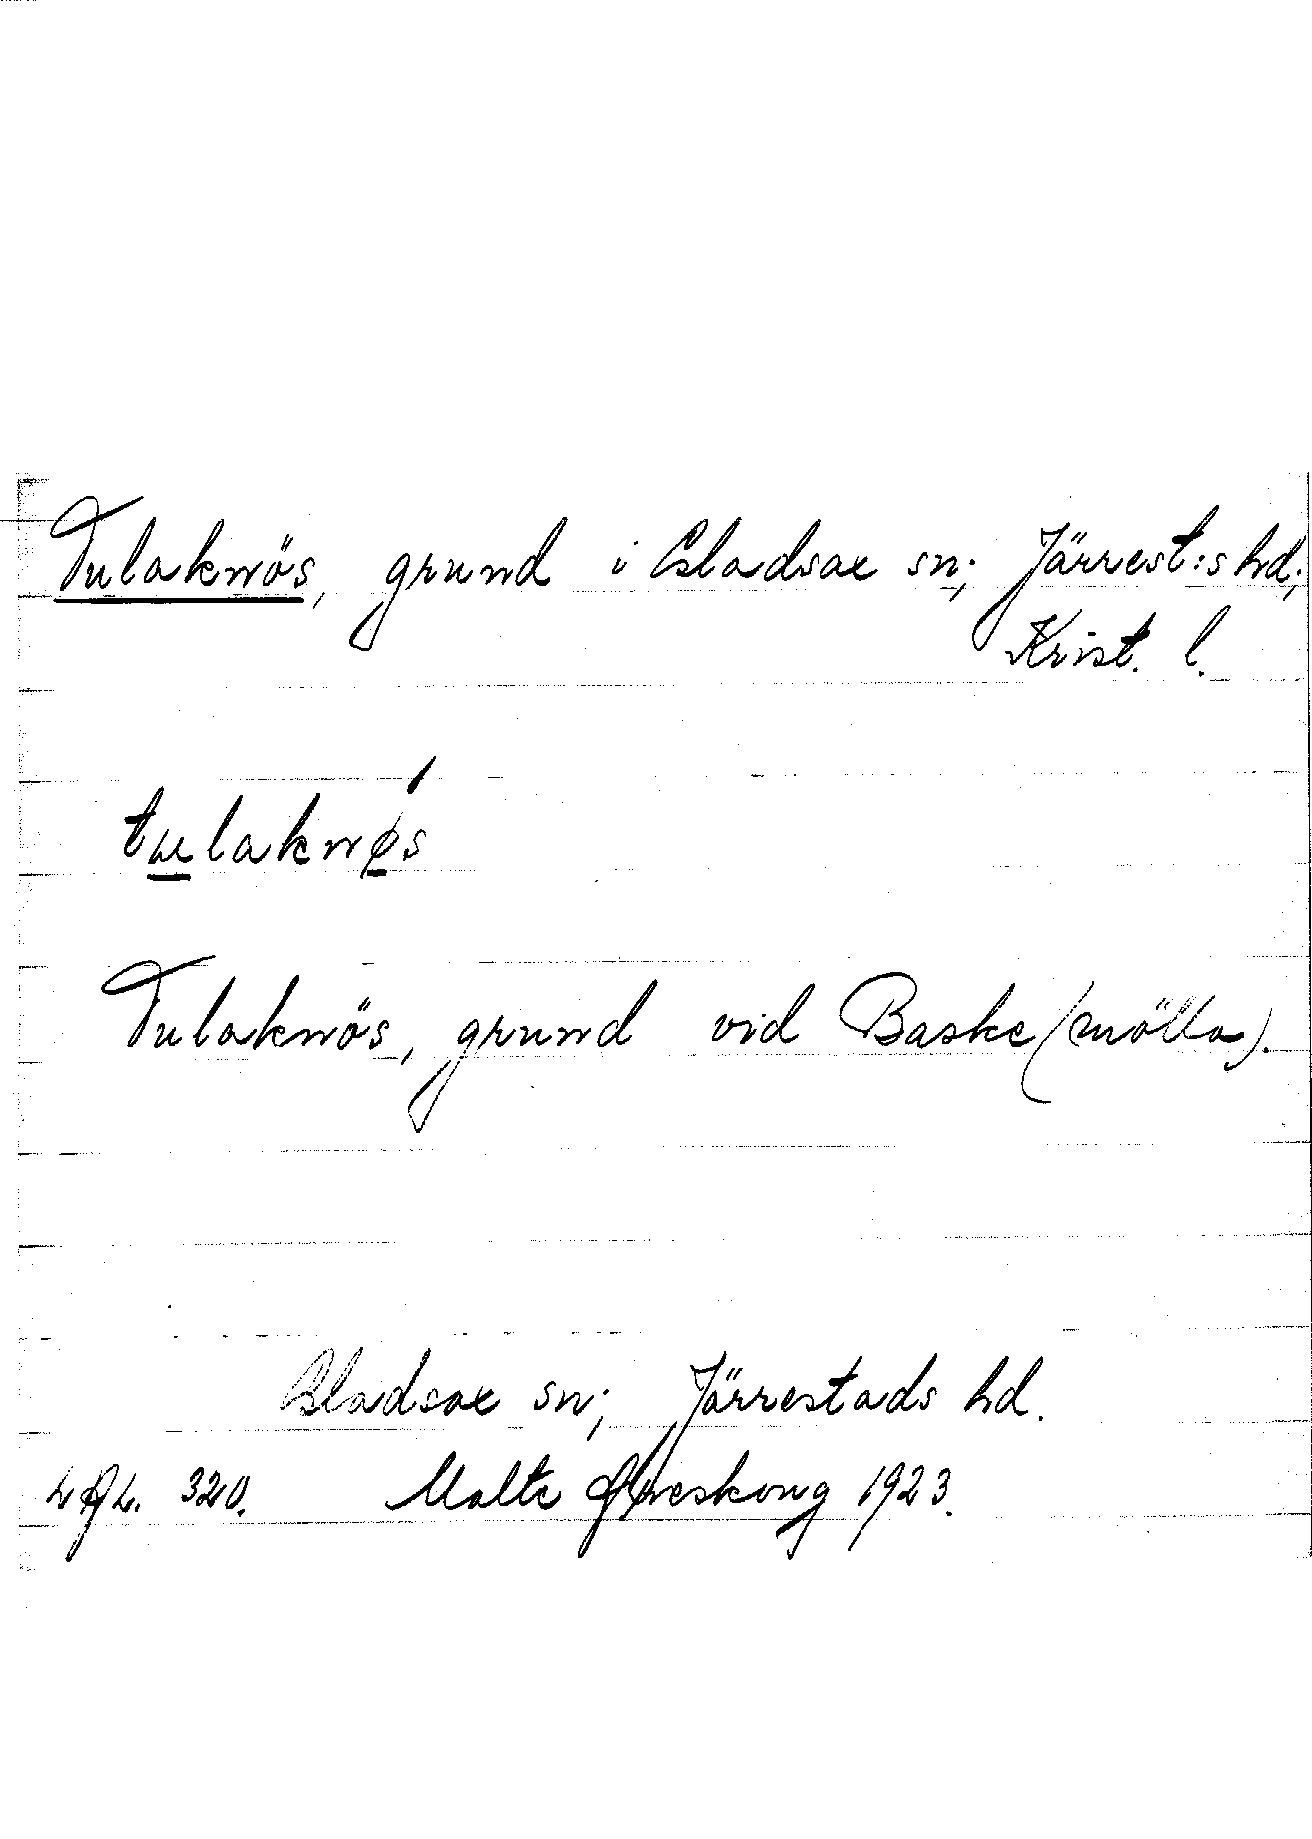 Tulaknös, grund i Gladsax sn; Järrest:s hd;
Krist. l.
tulaknøs
Tulaknös, grund vid Baske (mölla).
Gladsax sn; Järrestads hd.
320. Malte 1923.